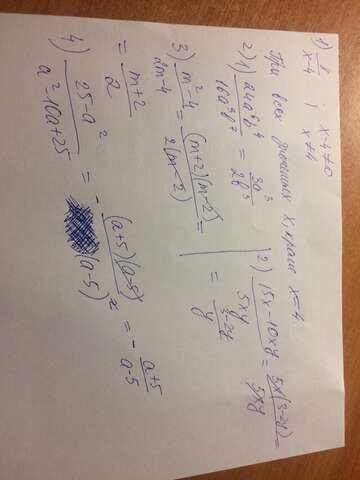 1) 8/(x-4) ; x-4≠0
x≠4
При всех значениях x, кроме x=4
2) 1) 24a⁶b⁴/(16a³b⁷) = 3a³/(2b³)
2) (15x-10xy)/(5xy) = 5x(3-2y)/(5xy) =
= (3-2y)/y
3) (m²-4)/(2m-4) = (m+2)(m-2)/(2(m-2)) =
= (m+2)/2
4) (25-a²)/(a²-10a+25) = - (a+5)(a-5)/(a-5)² = - (a+5)/(a-5)